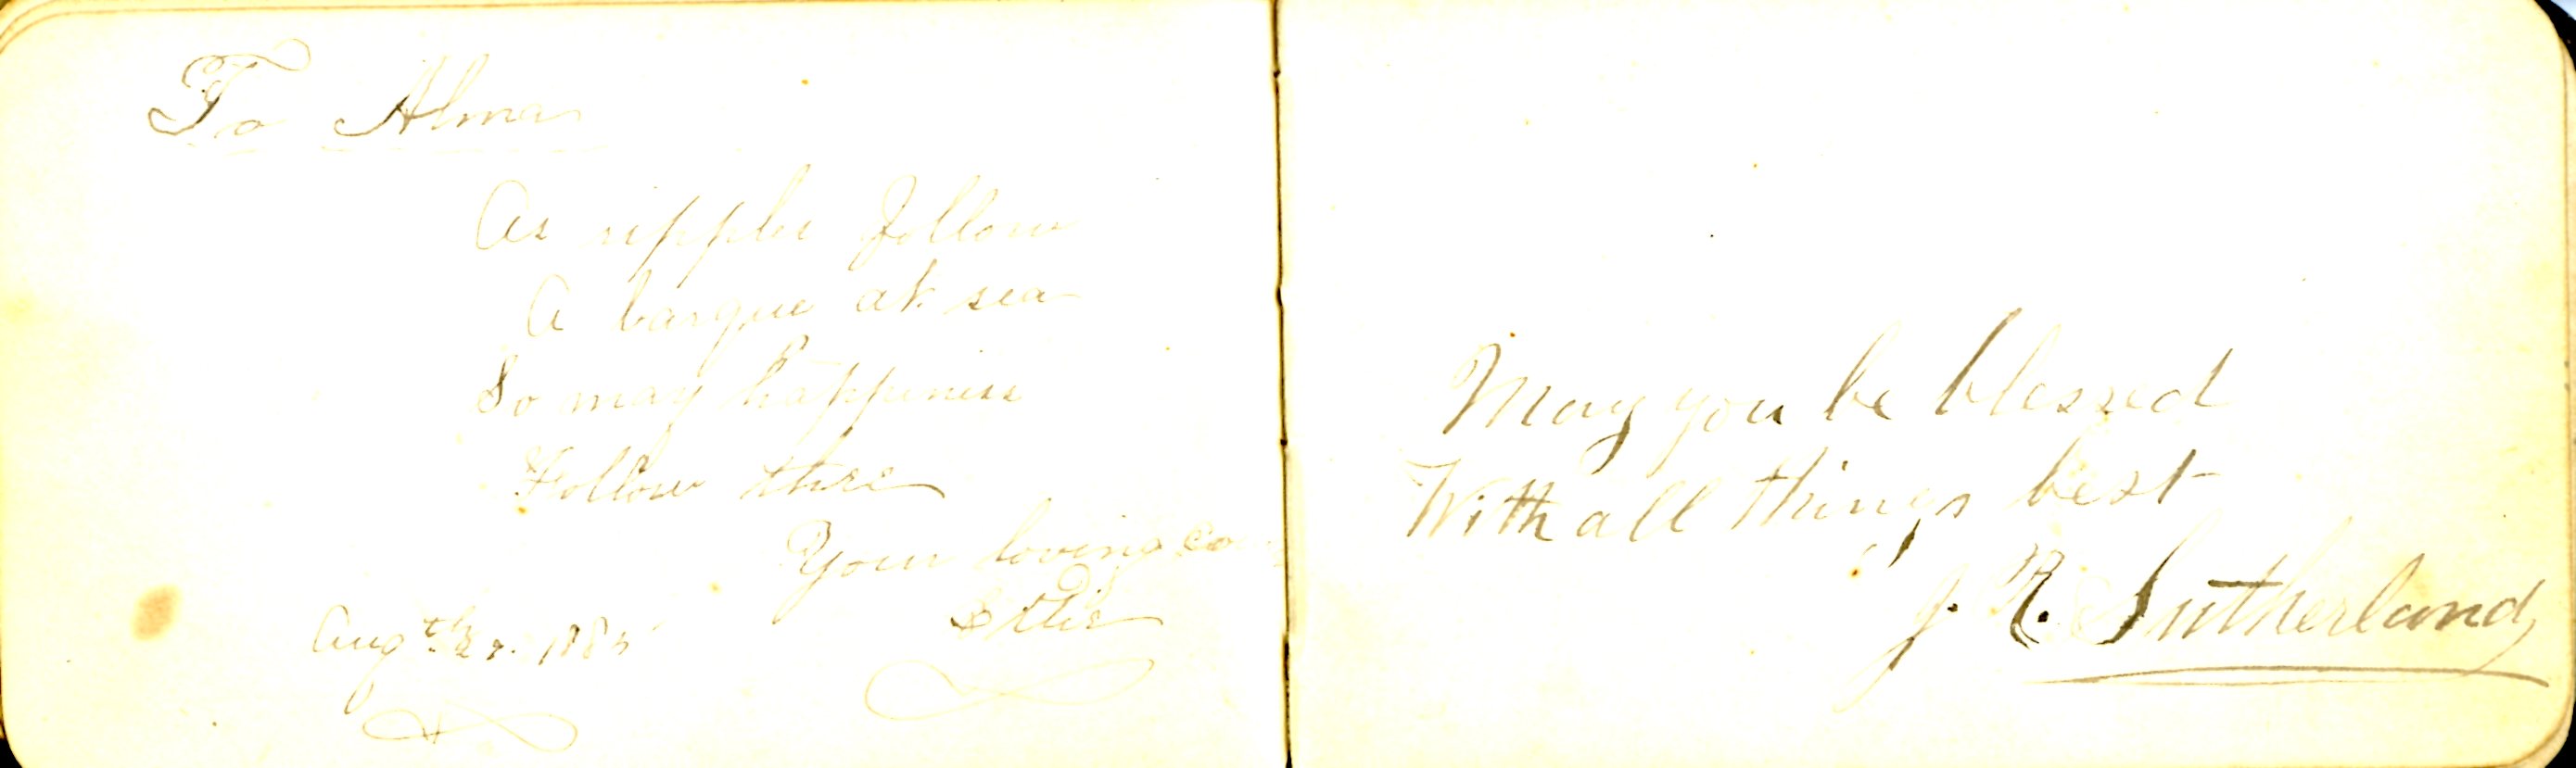 To Alma
As ripples follow
A barque at sea
So may happiness
Follow thee
Your loving
Ettie
Aug 1885
May you be blessed
With all things best
J. R. Sutherland